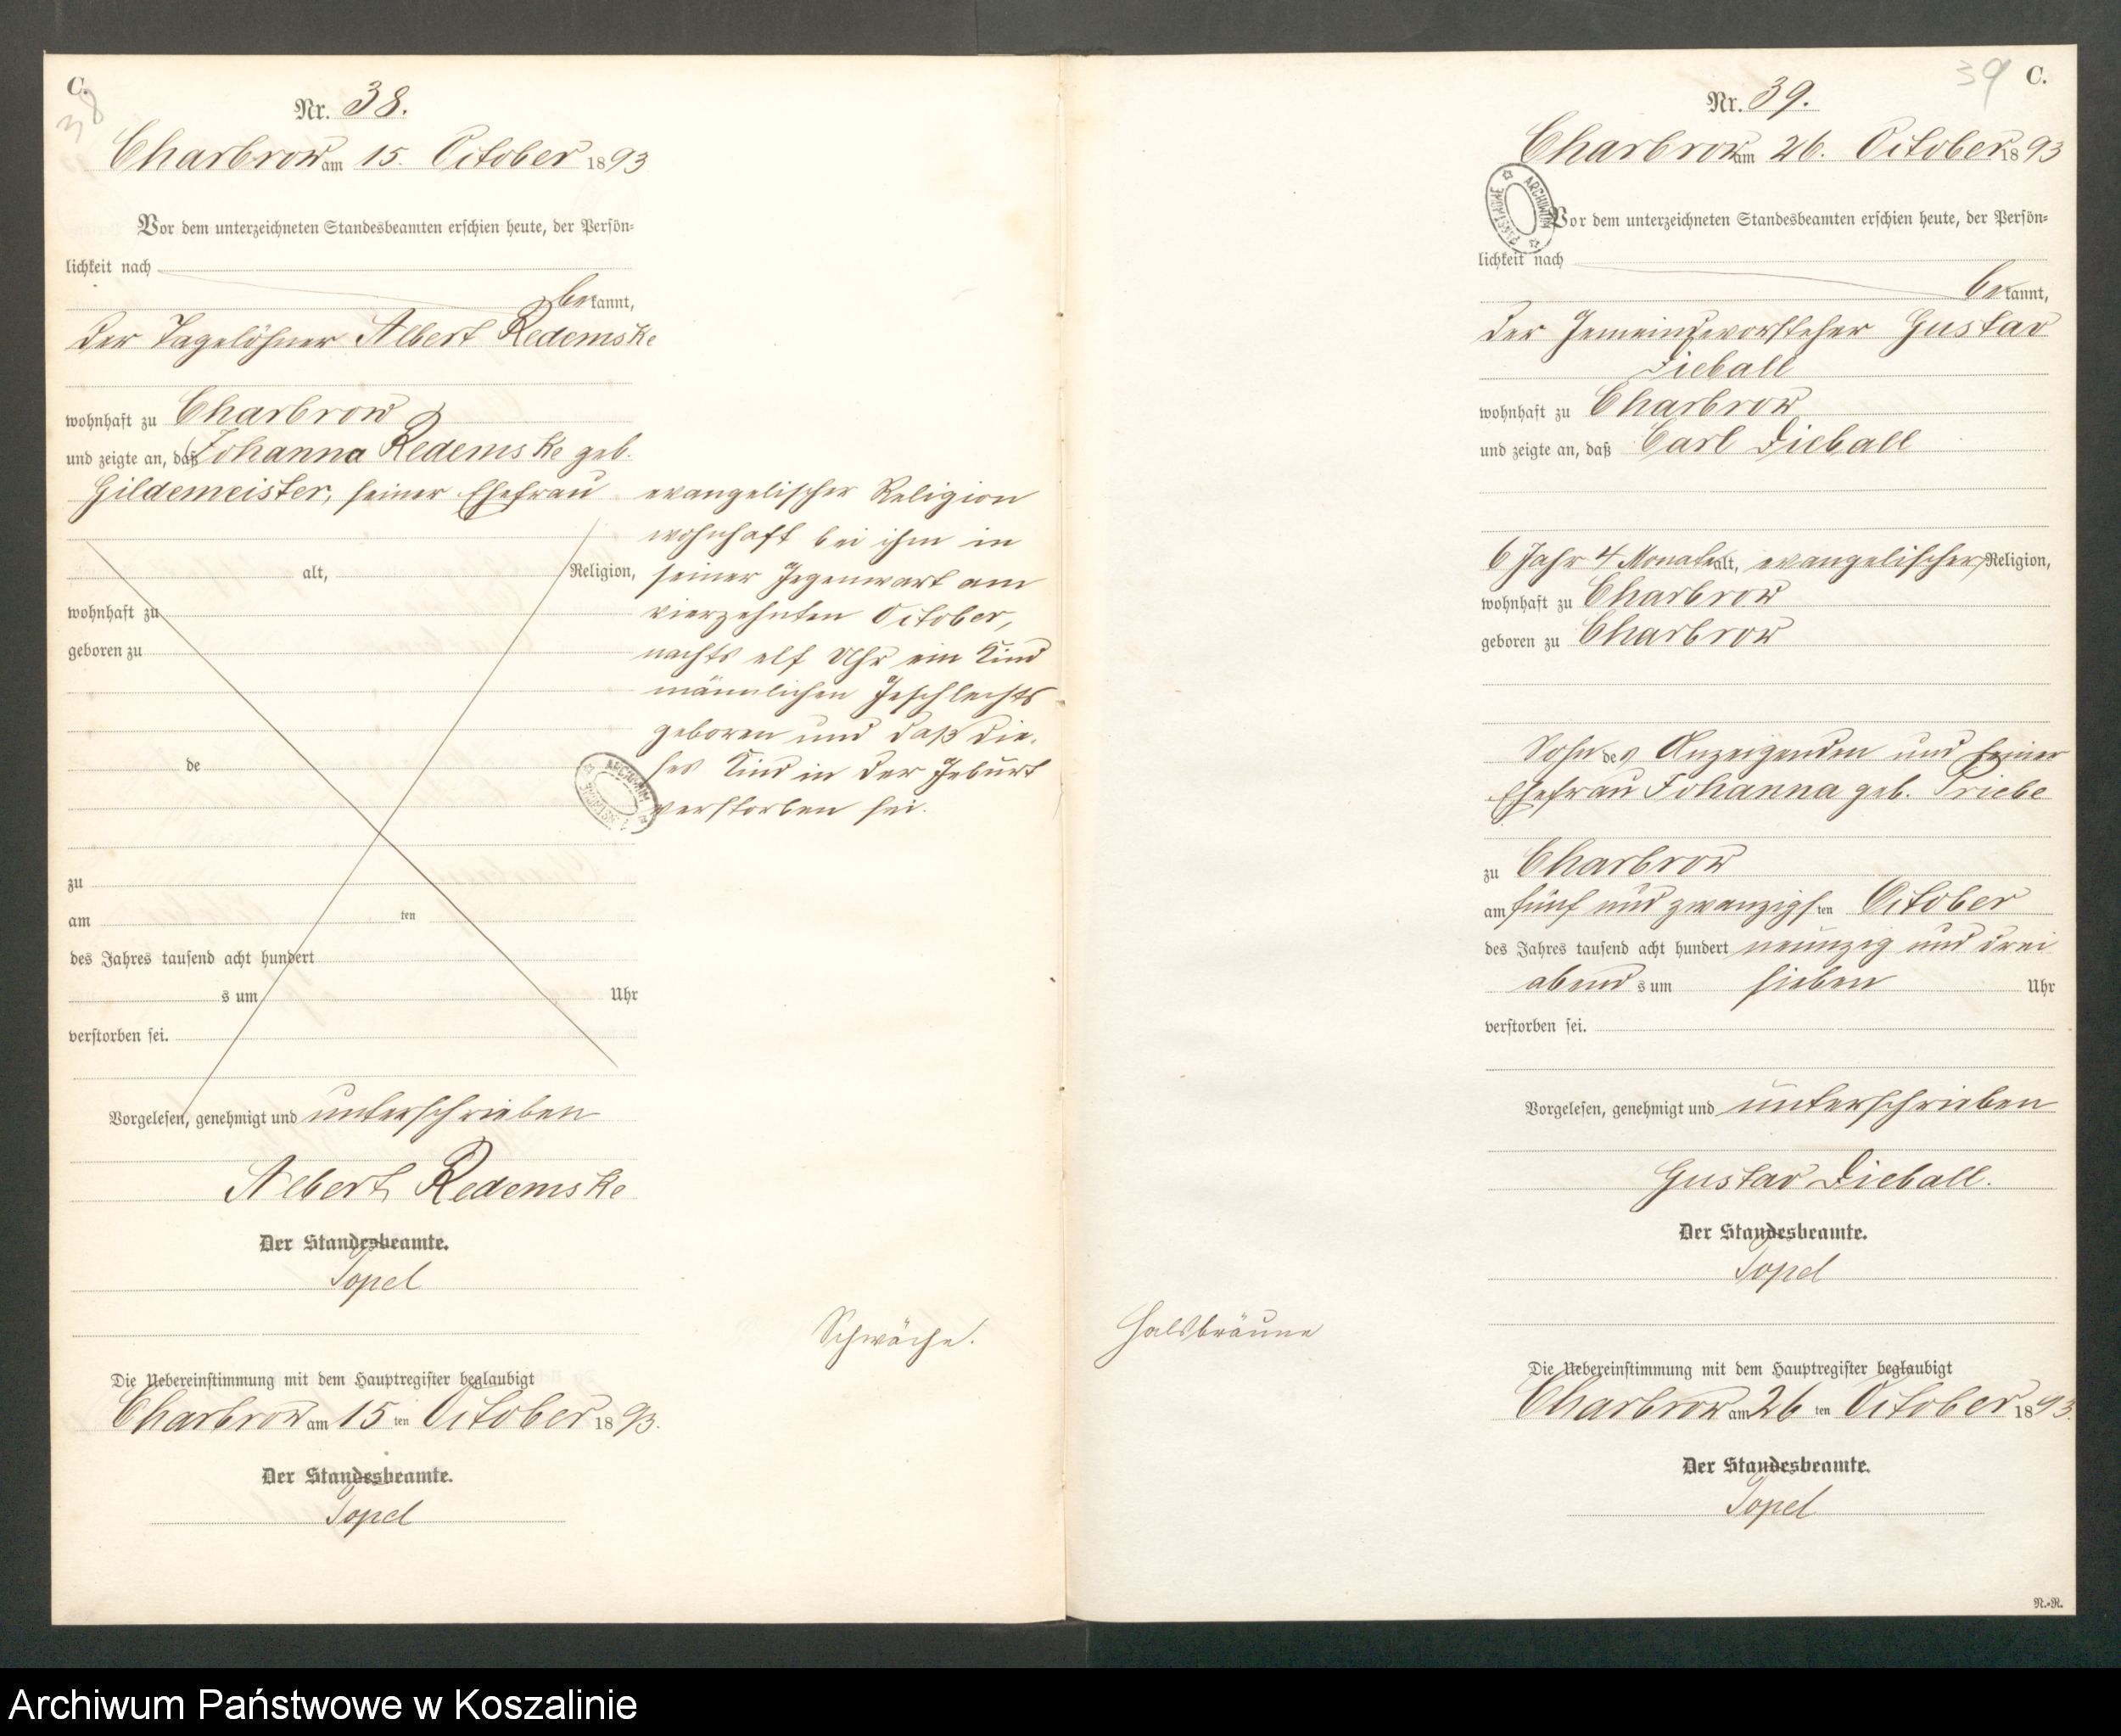 C.
38
Nr. 38.
Charbrow am 15. October 1893
Vor dem unterzeichneten Standesbeamten erschien heute, der Persön-
lichkeit nach
bekannt,
der Tagelöhner Albert Redemske
wohnhaft zu Charbrow
und zeigte an, daß Johanna Redemske geb.
Gildemeister, seiner Ehefrau
alt, Religion,
wohnhaft zu
geboren zu
de
zu
am ten
des Jahres tausend acht hundert
s um Uhr
verstorben sei.
evangelischer Religion
wohnhaft bei ihm in
seiner Gegenwart am
vierzehnten October,
nachts elf Uhr ein Kind
männlichen Geschlechts
geboren und daß die-
ses Kind in der Geburt
verstorben sei.
ARCHIWUM PAŃSTWOWE
Vorgelesen, genehmigt und unterschrieben
Albert Redemske
Der Standesbeamte.
Topel
Schwäche.
Die Uebereinstimmung mit dem Hauptregister beglaubigt
Charbrow am 15 ten October 1893.
Der Standesbeamte.
Topel
39
C.
Nr. 39.
Charbrow am 26. October 1893
ARCHIWUM PAŃSTWOWE
Vor dem unterzeichneten Standesbeamten erschien heute, der Persön-
lichkeit nach
bekannt,
der Gemeindevorsteher Gustav
Dieball
wohnhaft zu Charbrow
und zeigte an, daß Carl Dieball
6 Jahr 4 Monate alt, evangelischer Religion,
wohnhaft zu Charbrow
geboren zu Charbrow
Sohn des Anzeigenden und seiner
Ehefrau Johanna geb. Priebe
zu Charbrow
am fünf und zwanzigsten October
des Jahres tausend acht hundert neunzig und drei
abends um sieben Uhr
verstorben sei.
Vorgelesen, genehmigt und unterschrieben
Gustav Dieball.
Der Standesbeamte.
Topel
Halsbräune
Die Uebereinstimmung mit dem Hauptregister beglaubigt
Charbrow am 26 ten October 1893.
Der Standesbeamte.
Topel
N.-R.
Archiwum Państwowe w Koszalinie